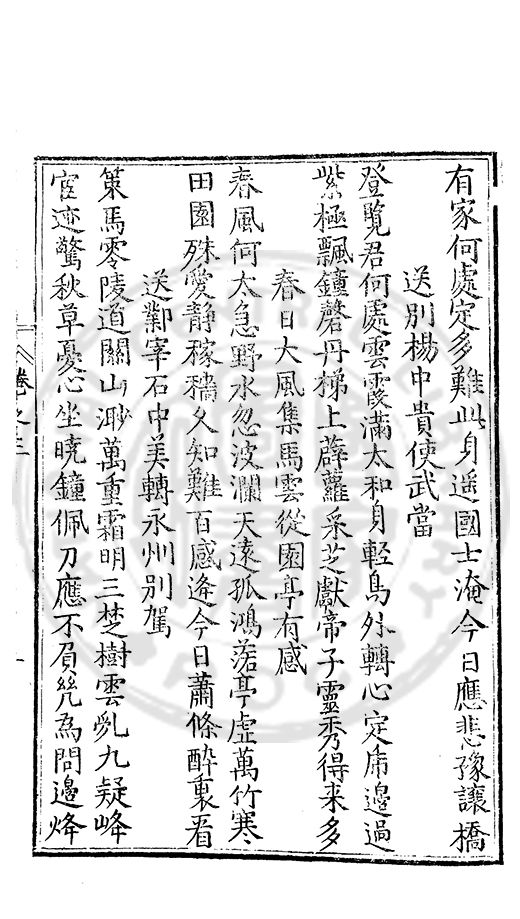 有家何處定多難此身遥國士淹今日應悲豫讓橋
送別楊中貴使武當
登覽君何處雲霞滿太和身輕鳥外轉心定席邊過
紫極飄鐘磬丹梯上薜蘿采芝獻帝子靈秀得来多
春日大風集馬雲從園亭有感
春風何太急野水忽波瀾天遠孤鴻落亭虛萬竹寒
田園殊愛靜稼穡久知難百感逄今日蕭條醉裏看
送鄴宰石中美轉永州別駕
策馬零陵道關山渺萬重霜明三楚樹雲亂九疑峰
宦迹驚秋草憂心坐曉鐘佩刀應不負㡬爲問邊烽
卷之三